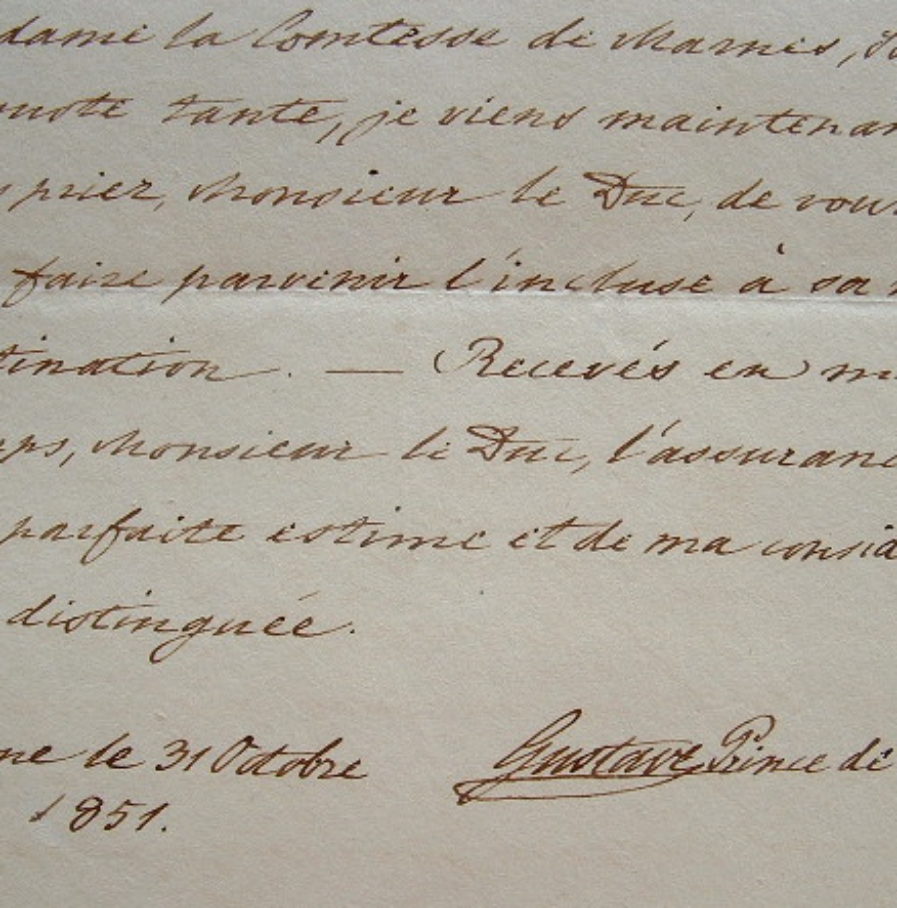 dame la Comtesse de Marnes, Sa
guste tante, je viens maintenan
s prier, Monsieur le Duc, de voul
faire parvenir l'incluse à sa
tination. — Recevés en mê
mps, Monsieur le Duc, l'assuranc
parfaite estime et de ma consid
distinguée.
ne le 31 Octobre
1851.
Gustave Prince de